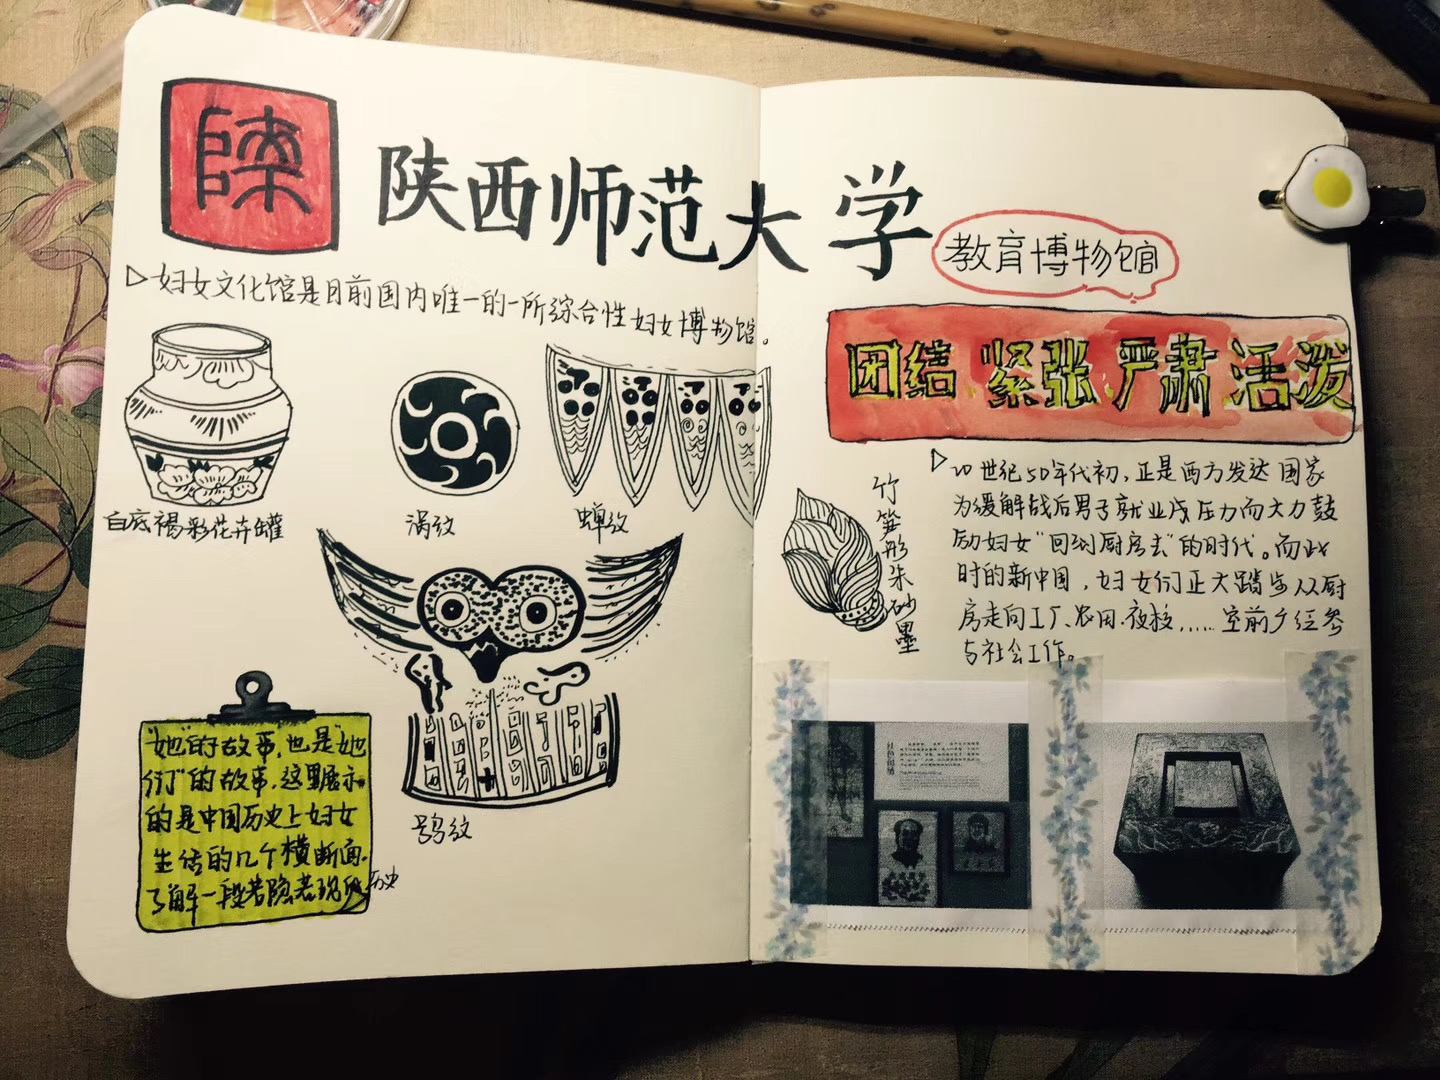 陕
陕西师范大学
教育博物馆
▷妇女文化馆是目前国内唯一的一所综合性妇女博物馆。
白底褐彩花卉罐
涡纹
蝉纹
鸮纹
"她"的故事,也是"她
们"的故事.这里展示
的是中国历史上妇女
生活的几个横断面.
了解一段若隐若现的历史
团结 紧张 严肃 活泼
竹笋形朱砂墨
▷20世纪50年代初,正是西方发达国家
为缓解战后男子就业压力而大力鼓
励妇女"回到厨房去"的时代。而此
时的新中国,妇女们正大踏步从厨
房走向工厂、农田、夜校......空前广泛参
与社会工作。